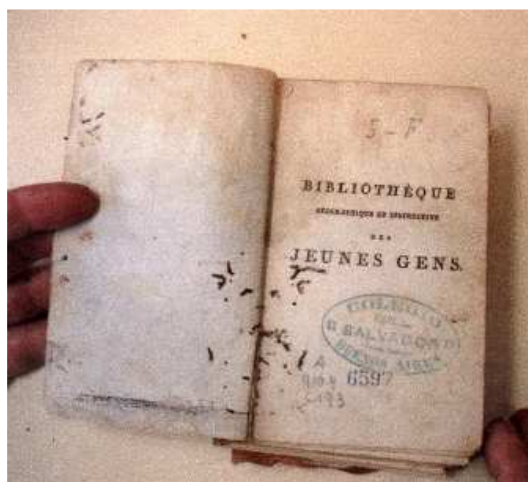 5 - F
BIBLIOTHÈQUE
GÉOGRAPHIQUE ET INSTRUCTIVE
DES
JEUNES GENS.
COLEGIO
SALVADOR
BUENOS AIRES
A
6597